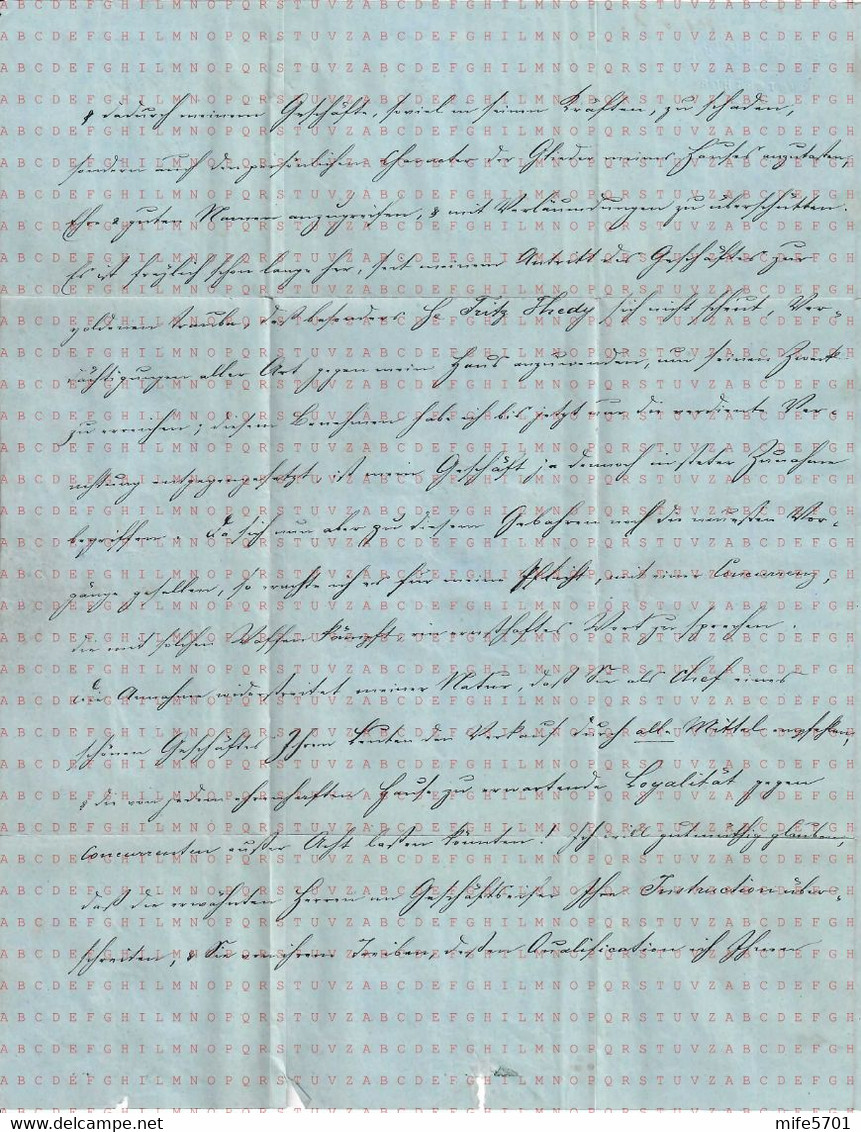 & dadurch meinem Geschäfte, soviel in seinen Kräften, zu schaden,
sondern auch den persönlichen Charakter der Glieder meines Hauses anzutasten,
Ehre & guten Namen anzugreifen, & mit Verläumdungen zu überschütten.
Es ist freylich schon lange her, seit meinem Antritt des Geschäftes zur
goldenen Traube, daß besonders H. Fritz Thedy sich nicht scheut, Ver-
dächtigungen aller Art gegen mein Haus anzuwenden, um seinen Zweck
zu erreichen; diesem Benehmen habe ich bis jetzt nur die verdiente Ver-
achtung entgegengesetzt, ist mein Geschäft ja dennoch in steter Zunahme
begriffen. Da sich nun aber zu diesem Gebahren noch die neuesten Vor-
gänge gesellen, so erachte ich es für meine Pflicht, mit einer Concurrenz,
die mit solchen Waffen kämpft, ein ernsthaftes Wort zu sprechen.
Die Annahme widerstreitet meiner Natur, daß Sie als Chef eines
schönen Geschäftes Ihren Leuten den Verkauf durch alle Mittel empfehlen,
& die von jedem ehrenhaften Hause zu erwartende Loyalität gegen
Concurrenten außer Acht lassen könnten! Ich will gutmüthig glauben,
daß die erwähnten Herren im Geschäftseifer Ihre Instruction über-
schreiten, & Sie von ihrem Treiben, dessen Qualification ich Ihnen
A B C D E F G H I L M N O P Q R S T U V Z A B C D E F G H I L M N O P Q R S T U V Z A B C D E F G H
mife5701